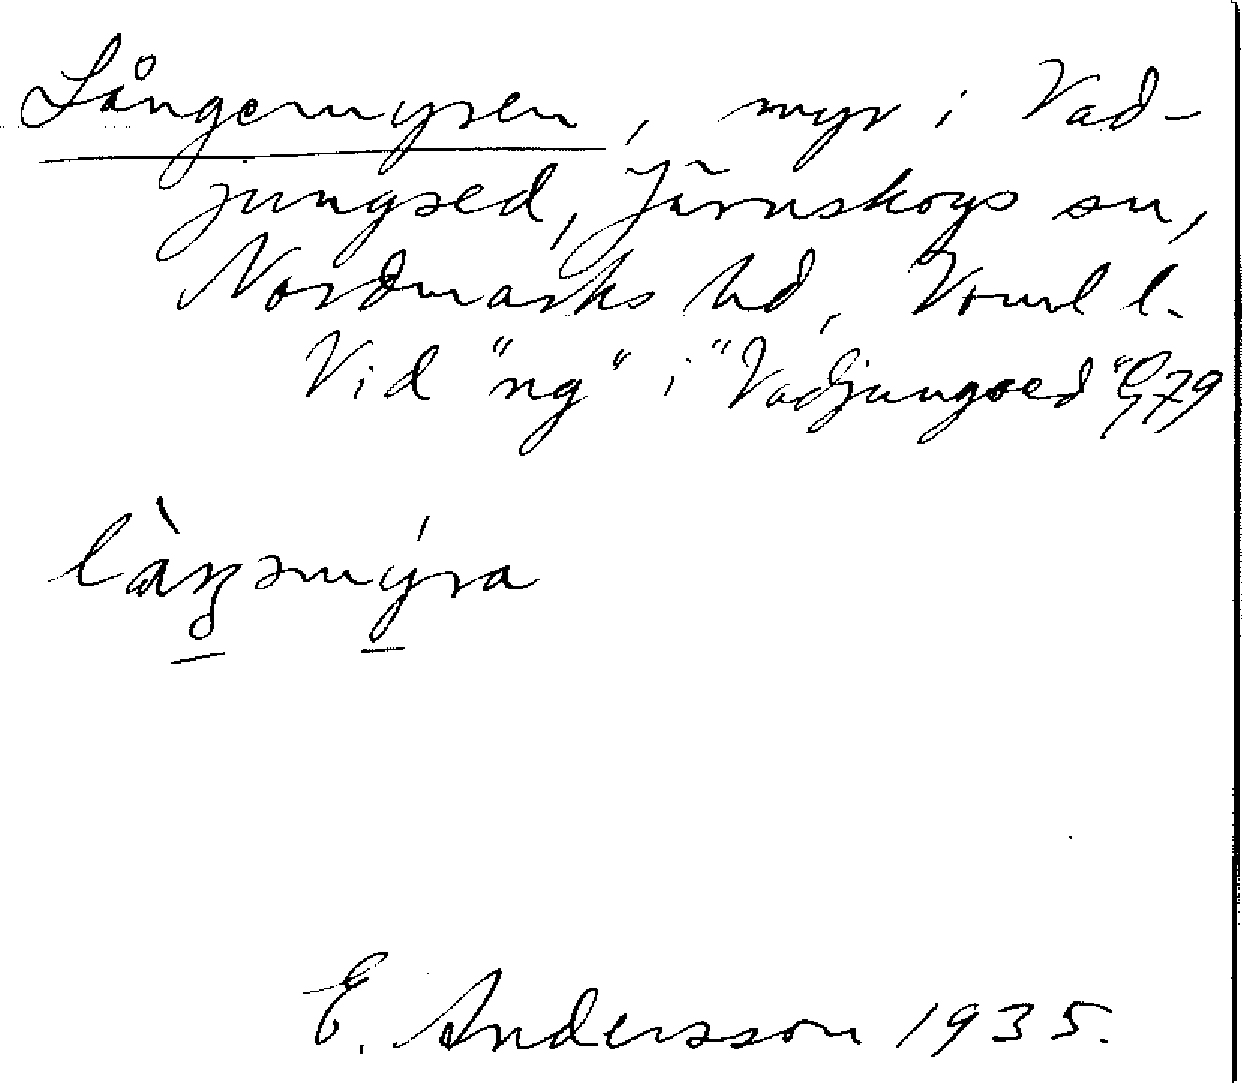 Långemyren, myr i Vad-
jungsed, Järnskogs sn,
Nordmarks hd, Vrml l.
Vid "ng" i "Vadjungsed" G 79
làŋəmýra
E. Andersson 1935.